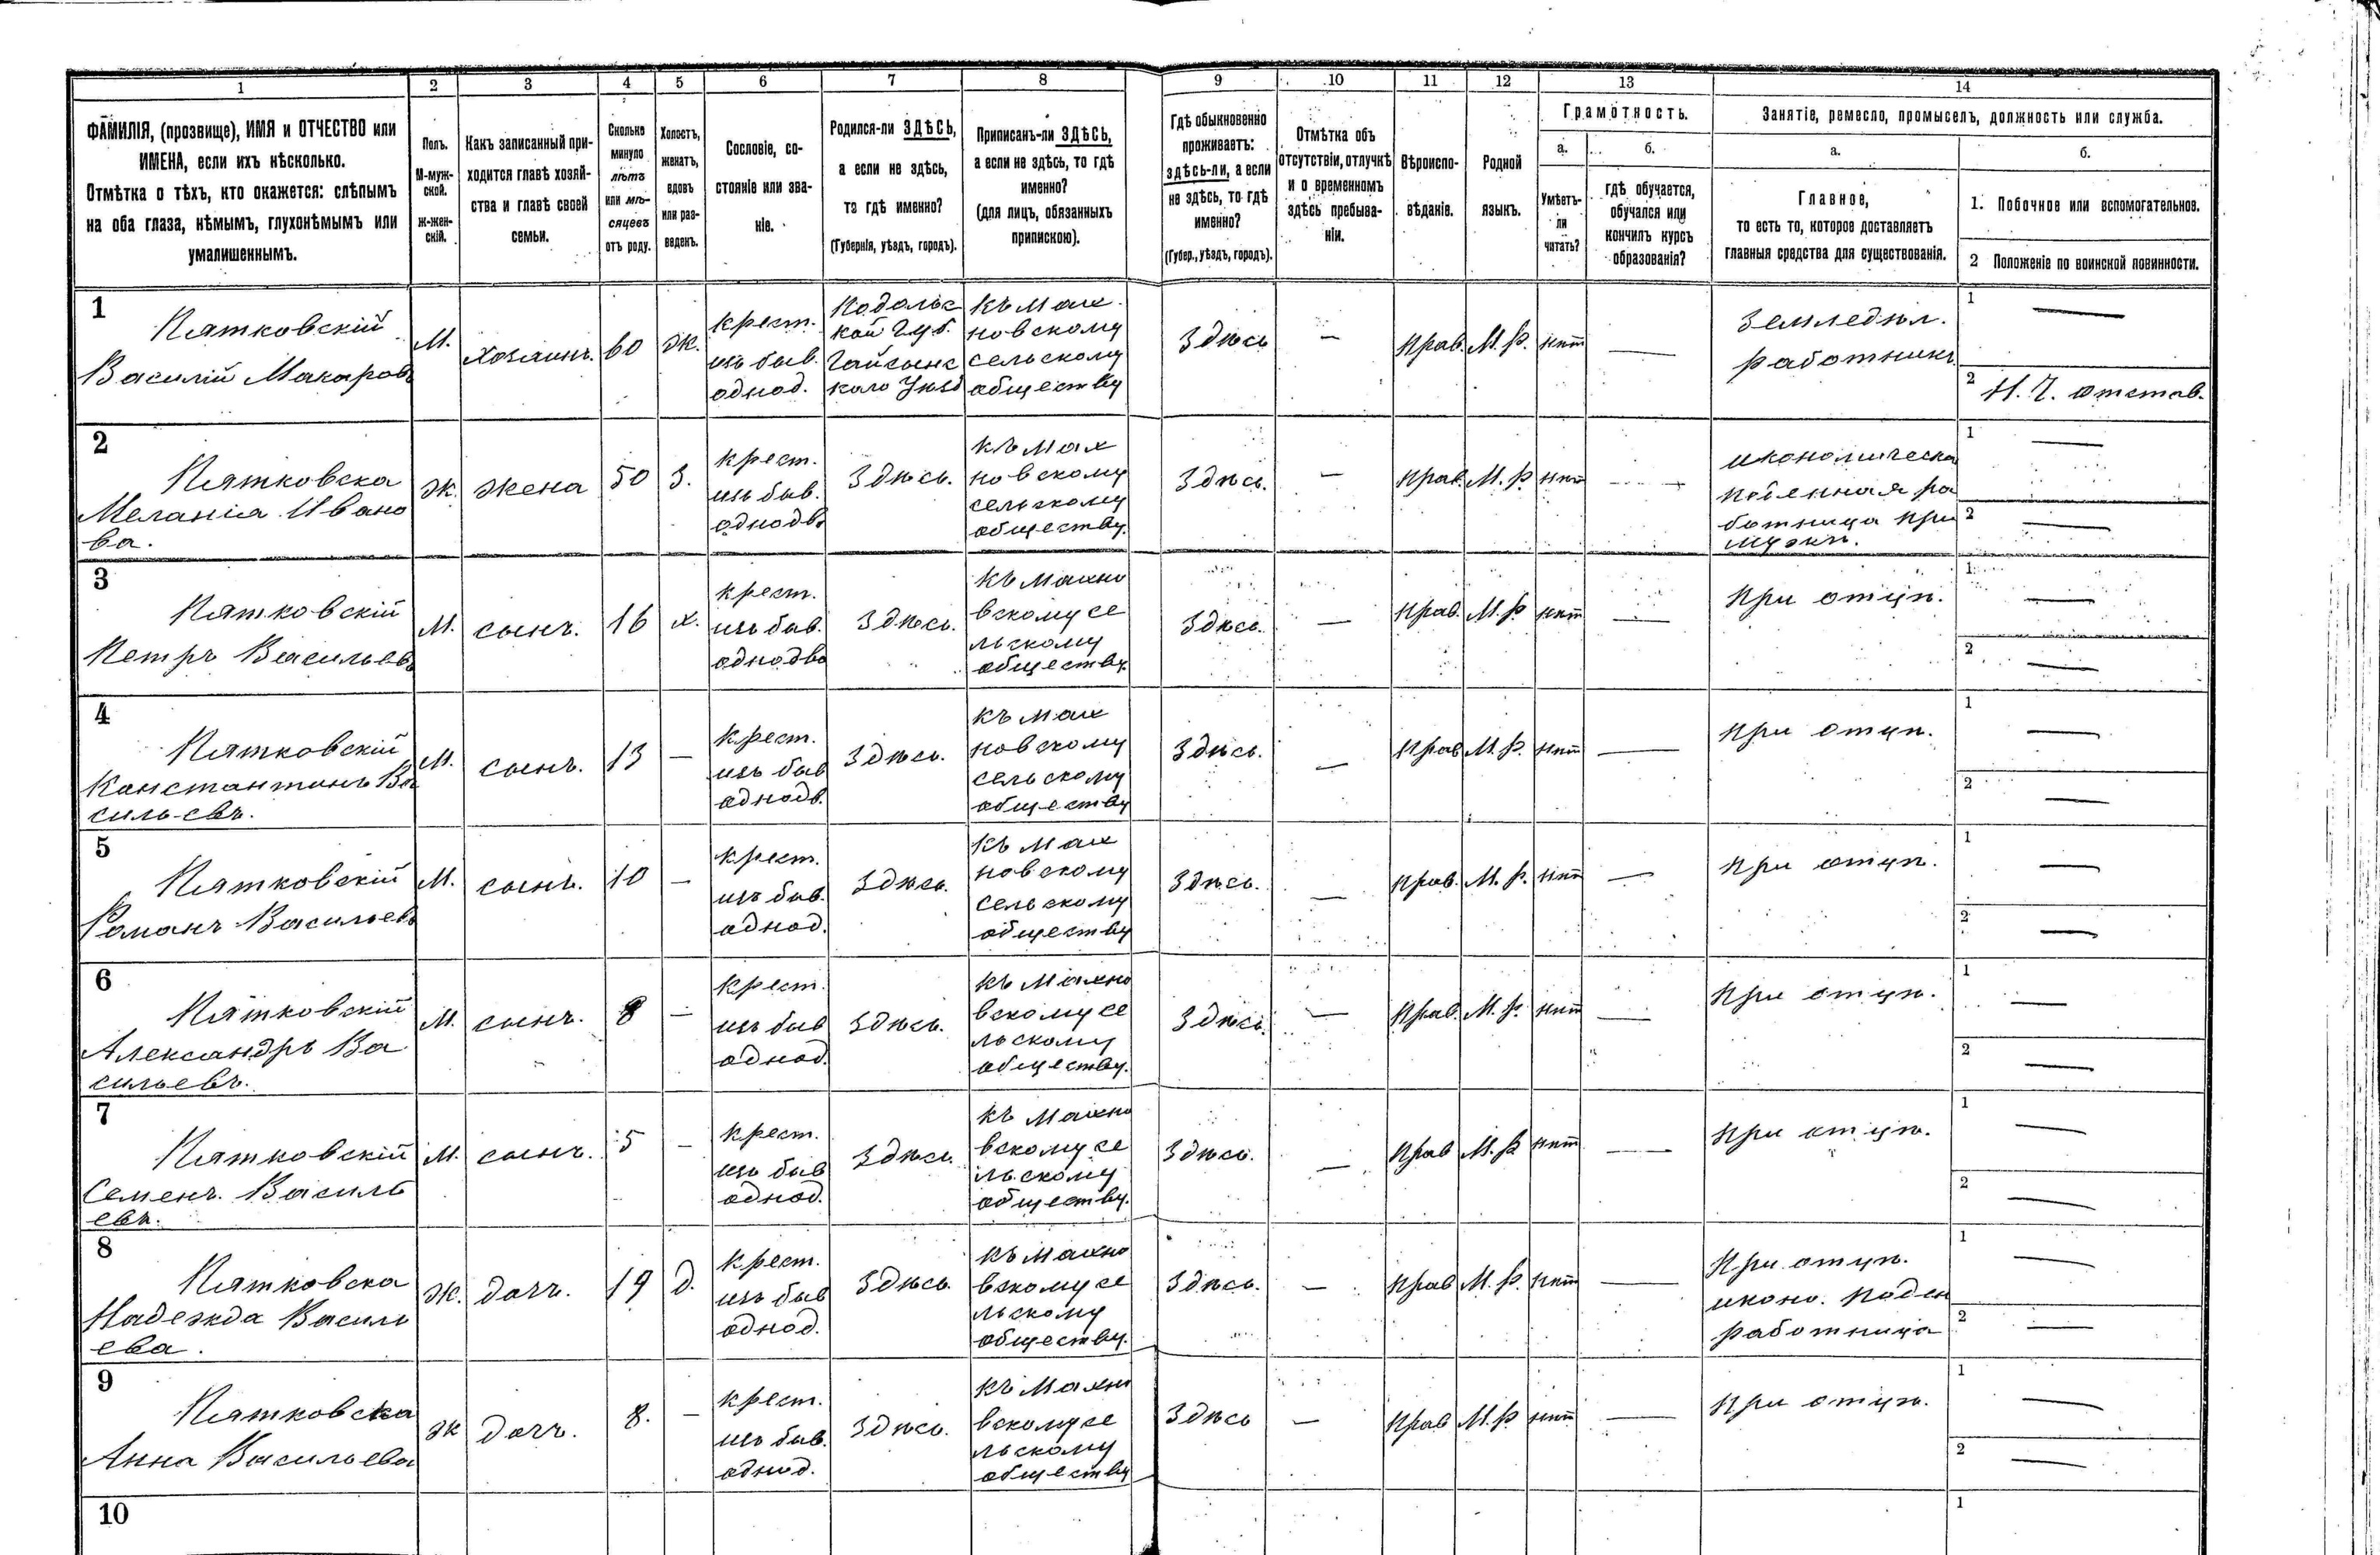 1 2 3 4 5 6 7 8 9 10 11 12 13 14
ФАМИЛІЯ, (прозвище), ИМЯ и ОТЧЕСТВО или
ИМЕНА, если ихъ нѣсколько.
Отмѣтка о тѣхъ, кто окажется: слѣпымъ
на оба глаза, нѣмымъ, глухонѣмымъ или
умалишеннымъ.
Полъ.
М-муж-
ской.
Ж-жен-
скій.
Какъ записанный при-
ходится главѣ хозяй-
ства и главѣ своей
семьи.
Сколько
минуло
лѣтъ
или мѣ-
сяцевъ
отъ роду.
Холостъ,
женатъ,
вдовъ
или раз-
веденъ.
Сословіе, со-
стояніе или зва-
ніе.
Родился-ли ЗДѢСЬ,
а если не здѣсь,
то гдѣ именно?
(Губернія, уѣздъ, городъ).
Приписанъ-ли ЗДѢСЬ,
а если не здѣсь, то гдѣ
именно?
(для лицъ, обязанныхъ
припискою).
Гдѣ обыкновенно
проживаетъ:
здѣсь-ли, а если
не здѣсь, то гдѣ
именно?
(Губер., уѣздъ, городъ).
Отмѣтка объ
отсутствіи, отлучкѣ
и о временномъ
здѣсь пребыва-
ніи.
Вѣроиспо-
вѣданіе.
Родной
языкъ.
Грамотность.
а.
Умѣетъ-
ли
читать?
б.
гдѣ обучается,
обучался или
кончилъ курсъ
образованія?
Занятіе, ремесло, промыселъ, должность или служба.
а.
Главное,
то есть то, которое доставляетъ
главныя средства для существованія.
б.
1. Побочное или вспомогательное.
2 Положеніе по воинской повинности.
1
Пятковскій
Василій Макаровъ
М.
хозяинъ.
60
ж.
крест.
изъ быв.
однод.
Подольс
кой Губ.
Гайсынс
каго Уѣзд
къ Мах
новскому
сельскому
обществу
Здѣсь
—
Прав.
М. Р.
нѣт
—
Земледѣл.
работникъ
1 —
2 Н. Ч. отстав.
2
Пятковска
Меланія Ивано
ва.
ж.
жена
50
З.
крест.
изъ быв.
однодв
Здѣсь.
къ Мах
новскому
сельскому
обществу.
Здѣсь.
—
Прав.
М. Р.
нѣт
—
икономическа
поденная ра
ботница при
мужѣ.
1 —
2 —
3
Пятковскій
Петръ Васильевъ
М.
сынъ.
16
х.
крест.
изъ быв.
однодво
Здѣсь.
къ Махно
вскому се
льскому
обществу.
Здѣсь.
—
Прав.
М. Р.
нѣт
—
При отцѣ.
1 —
2 —
4
Пятковскій
Константинъ Ва
сильевъ.
М.
сынъ.
13
—
крест.
изъ быв
однодв.
Здѣсь.
къ Мах
новскому
сельскому
обществу
Здѣсь.
—
Прав
М. Р.
нѣт
—
При отцѣ.
1 —
2 —
5
Пятковскій
Романъ Васильевъ
М.
сынъ.
10
—
крест.
изъ быв.
однод.
Здѣсь.
къ Мах
новскому
сельскому
обществу
Здѣсь.
—
Прав.
М. Р.
нѣт
—
При отцѣ.
1 —
2 —
6
Пятковскій
Александръ Ва
сильевъ.
М.
сынъ.
8
—
крест.
изъ быв
однод.
Здѣсь.
къ Махно
вскому се
льскому
обществу.
Здѣсь.
—
Прав.
М. Р.
нѣт
—
При отцѣ.
1 —
2 —
7
Пятковскій
Семенъ Василь
евъ.
М.
сынъ.
5
—
крест.
изъ быв
однод.
Здѣсь.
къ Махно
вскому се
льскому
обществу.
Здѣсь.
—
Прав
М. Р
нѣт
—
При отцѣ.
1 —
2 —
8
Пятковска
Надежда Василь
ева.
ж.
дочь.
19
д.
крест.
изъ быв
однод.
Здѣсь.
къ Махно
вскому се
льскому
обществу.
Здѣсь.
—
Прав
М. Р.
нѣт
—
При отцѣ.
иконо. поден
работница
1 —
2 —
9
Пятковска
Анна Васильева
ж
дочь.
8.
—
крест.
изъ быв.
однод.
Здѣсь.
къ Махно
вскому се
льскому
обществу
Здѣсь
—
Прав
М. Р
нѣт
—
При отцѣ.
1 —
2 —
10
1